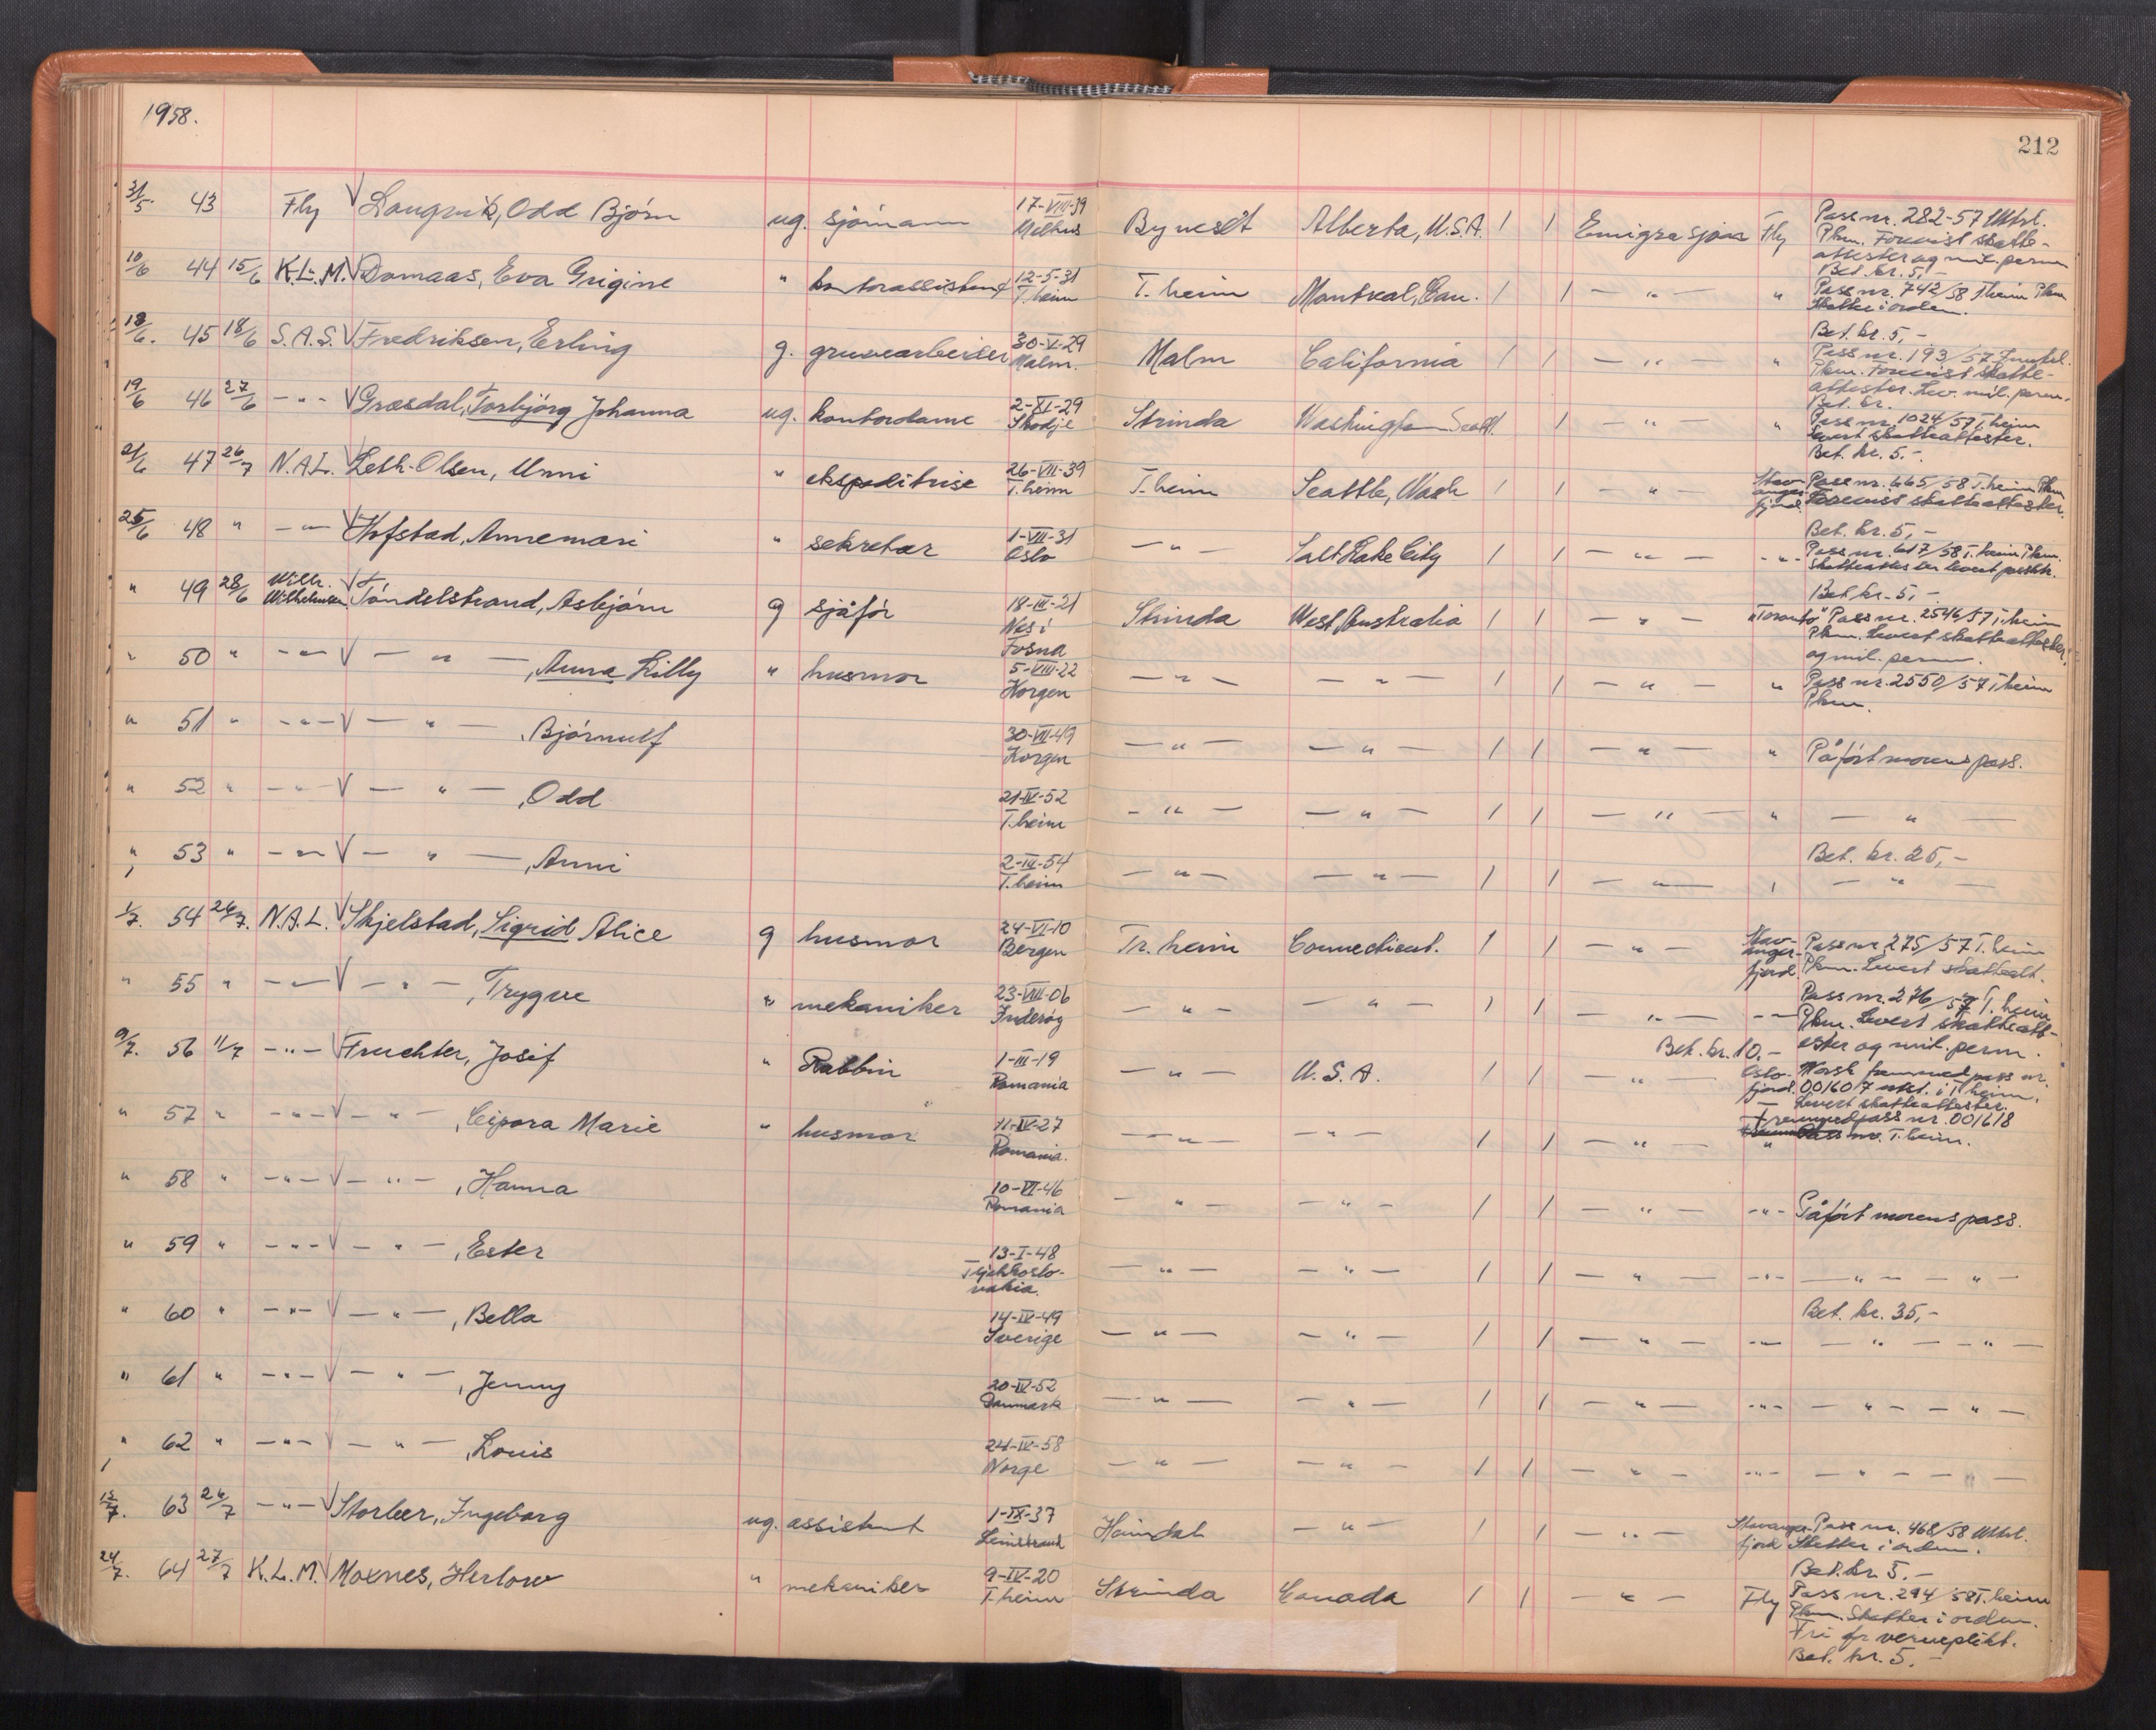 1958.
212
31/5. 43 Fly √ Langvik, Odd Bjørn ug. sjömann 17-VIII-39 Melhus Byneset Alberta, U.S.A. / / Emigrasjon Fly Pass nr. 282-57 Utstl.
Pkm. Forevist skatte-
attester og mil. perm
Bet. kr. 5,-
10/6 44 15/6 K.L.M. √ Domaas, Eva Grigine " kontorassistent 12-5-31 T.heim T.heim Montreal, Can. / / — " — " Pass nr. 742/58 T.heim Pkm
Skatter i orden.
Bet. kr. 5,-
18/6. 45 18/6 S.A.S. √ Fredriksen, Erling g. gruvearbeiser 30-V-29 Malm. Malm California / / — " — " Pass nr. 193/57
Pkm. Forevist skatte-
attester. Lev. mil. perm.
Bet. kr.
19/6 46 27/6 - " - √ Græsdal, Torbjörg Johanna ug. kontordame 2-XI-29 Skodje Strinda Washington Seatt. / / — " — " Pass nr. 1024/57 T.heim
Levert skatteattester.
Bet. kr. 5.-
21/6 47 26/7 N.A.L. Leth-Olsen, Unni " ekspeditrise 26-VII-39 T.heim T.heim Seattle, Wash / / — " — Stav-
anger-
fjord. Pass nr. 665/58 T.heim Pkm
Forevist skatteattester.
Bet. kr. 5,-
25/6 48 " - " - √ Hofstad, Annemari " sekretær 1-VII-31 Oslo — " — Salt Lake City / / — " — - " - Pass nr. 617/58 T.heim Pkm.
Skatteattester levert
Bet. kr. 5,-
" 49 28/6 Wilh. Wilhelmsen √ Tøndelstrand, Asbjørn g sjåför 18-III-21 Nes i Fosna Strinda West Australia / / — " — "Toronto" Pass nr. 2546/57 T.heim
Pkm. Levert skatteattester
og mil. perm.
" 50 " - " - √ — " — , Anna Lilly " husmor 5-VIII-22 Korgen — " — — " — / / — " — " Pass nr. 2550/57 T.heim
Pkm.
" 51 " - " - √ — " — , Bjørnulf 30-VII-49 Korgen — " — — " — / / — " — " Påført morens pass.
" 52 " - " - √ — " — , Odd 21-IV-52 T.heim — " — — " — / / — " — " — " —
Bet. kr. 25,-
" 53 " - " - √ — " — , Anni 2-III-54 T.heim — " — — " — / / — " — " — " —
1/7. 54 26/7. N.A.L. √ Skjelstad, Sigrid Alice g husmor 24-VI-10 Bergen Tr.heim Connecticut. / / — " — Stav-
anger-
fjord. Pass nr 275/57 T.heim
Pkm. Levert skatteatt.
" 55 " - " - √ — " — , Trygve " mekaniker 23-VIII-06 Inderøy — " — — " — / / — " — - " - Pass nr. 276/57 T.heim
Pkm. Levert skatteatt-
ester og mil. perm.
Bet. kr. 10.-
9/7. 56 11/7 - " - √ Fruchter, Josif " Rabbin 1-III-19 Romania — " — U.S.A. / / — " — Oslo-
fjord. Norsk fremmedpass nr.
001607 utst. i T.heim.
Levert skatteattester.
" 57 " - " - √ — " — , Cipora Marie " husmor 11-IV-27 Romania. — " — — " — / / — " — " Fremmedpass nr. 001618
Pass nr. T.heim.
" 58 " - " - √ — " — , Hanna 10-VI-46 Romania — " — — " — / / — " — - " - Påført morens pass.
" 59 " - " - √ — " — , Ester 13-I-48 Tsjekkoslo-
vakia. — " — — " — / / — " — - " - — " — — " —
Bet. kr. 35,-
" 60 " - " - √ — " — , Bella 14-IV-49 Sverige — " — — " — / / — " — - " - — " — — " —
" 61 " - " - √ — " — , Jenny 20-IV-52 Danmark — " — — " — / / — " — - " - — " — — " —
" 62 " - " - √ — " — , Louis 24-IV-58 Norge — " — — " — / / — " — - " - — " — — " —
15/7. 63 26/7 - " - √ Storler, Ingeborg ug. assistent 1-IX-37 Leinstrand Heimdal — " — / / — " — Stavanger-
fjord Pass nr. 468/58 Utstl.
Skatter i orden.
Bet. kr. 5.-
24/7. 64 27/7 K.L.M. Moxnes, Herlow " mekaniker 9-IV-20 T.heim Strinda Canada / / — " — Fly Pass nr. 294/58 T.heim
Pkm. Skatter i orden.
Fri for verneplikt.
Bet. kr. 5.-